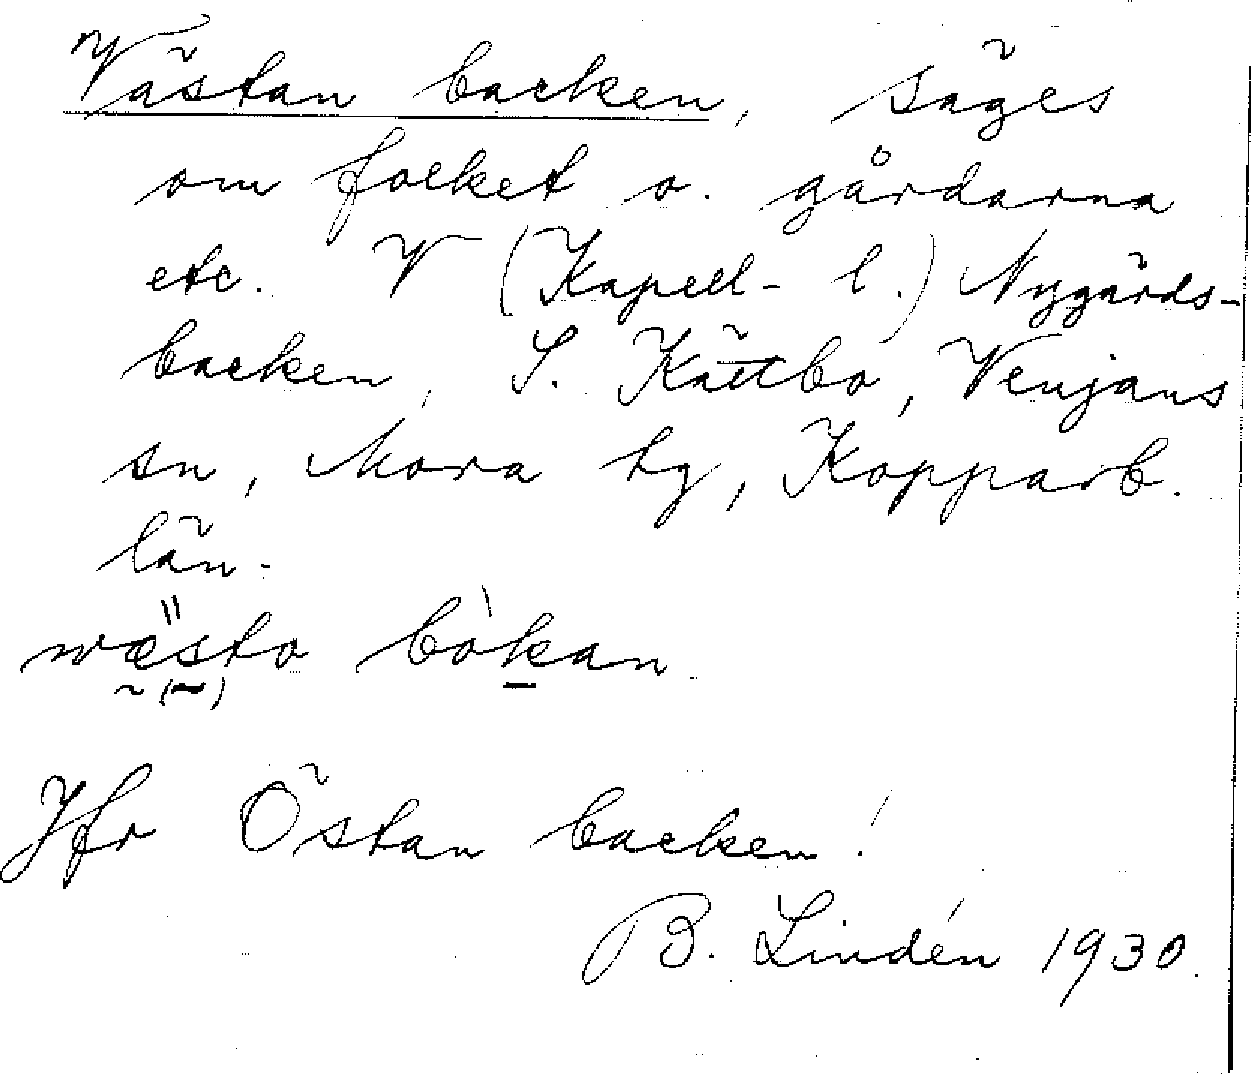 Västan backen, säges
om folket o. gårdarna
etc. V (Kapell- l.) Nygårds-
backen, S. Kättbo, Venjans
sn, Mora tg, Kopparb.
län.
wæ̋sto bòkan.
Jfr Östan backen!
B. Lindén 1930.